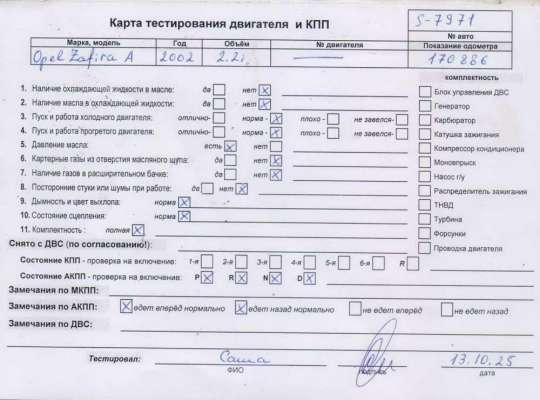 Карта тестирования двигателя и КПП
S-7971
№ авто
Марка, модель Год Объём № двигателя Показание одометра
Opel Zafira A 2002 2.2i 170 886
комплектность
1. Наличие охлаждающей жидкости в масле: да нет
2. Наличие масла в охлаждающей жидкости: да нет
3. Пуск и работа холодного двигателя: отлично- норма - плохо - не завелся-
4. Пуск и работа прогретого двигателя: отлично- норма - плохо - не завелся-
5. Давление масла: есть нет
6. Картерные газы из отверстия масляного щупа: да нет
7. Наличие газов в расширительном бачке: да нет
8. Посторонние стуки или шумы при работе: да нет
9. Дымность и цвет выхлопа: норма
10. Состояние сцепления: норма
11. Комплектность : полная
Блок управления ДВС
Генератор
Карбюратор
Катушка зажигания
Компрессор кондиционера
Моновпрыск
Насос г/у
Распределитель зажигания
ТНВД
Турбина
Форсунки
Проводка двигателя
Снято с ДВС (по согласованию!):
Состояние КПП - проверка на включение: 1-я 2-я 3-я 4-я 5-я 6-я R
Состояние АКПП - проверка на включение: P R N D
Замечания по МКПП:
Замечания по АКПП: едет вперёд нормально едет назад нормально не едет вперёд не едет назад
Замечания по ДВС:
Тестировал: Саша 13.10.25
ФИО подпись дата